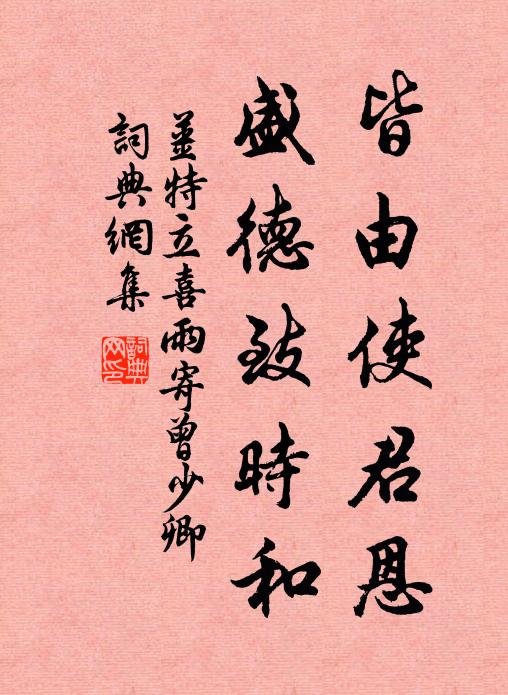 皆由使君恩
盛德致時和
姜特立喜雨寄曾少卿
詞典網集